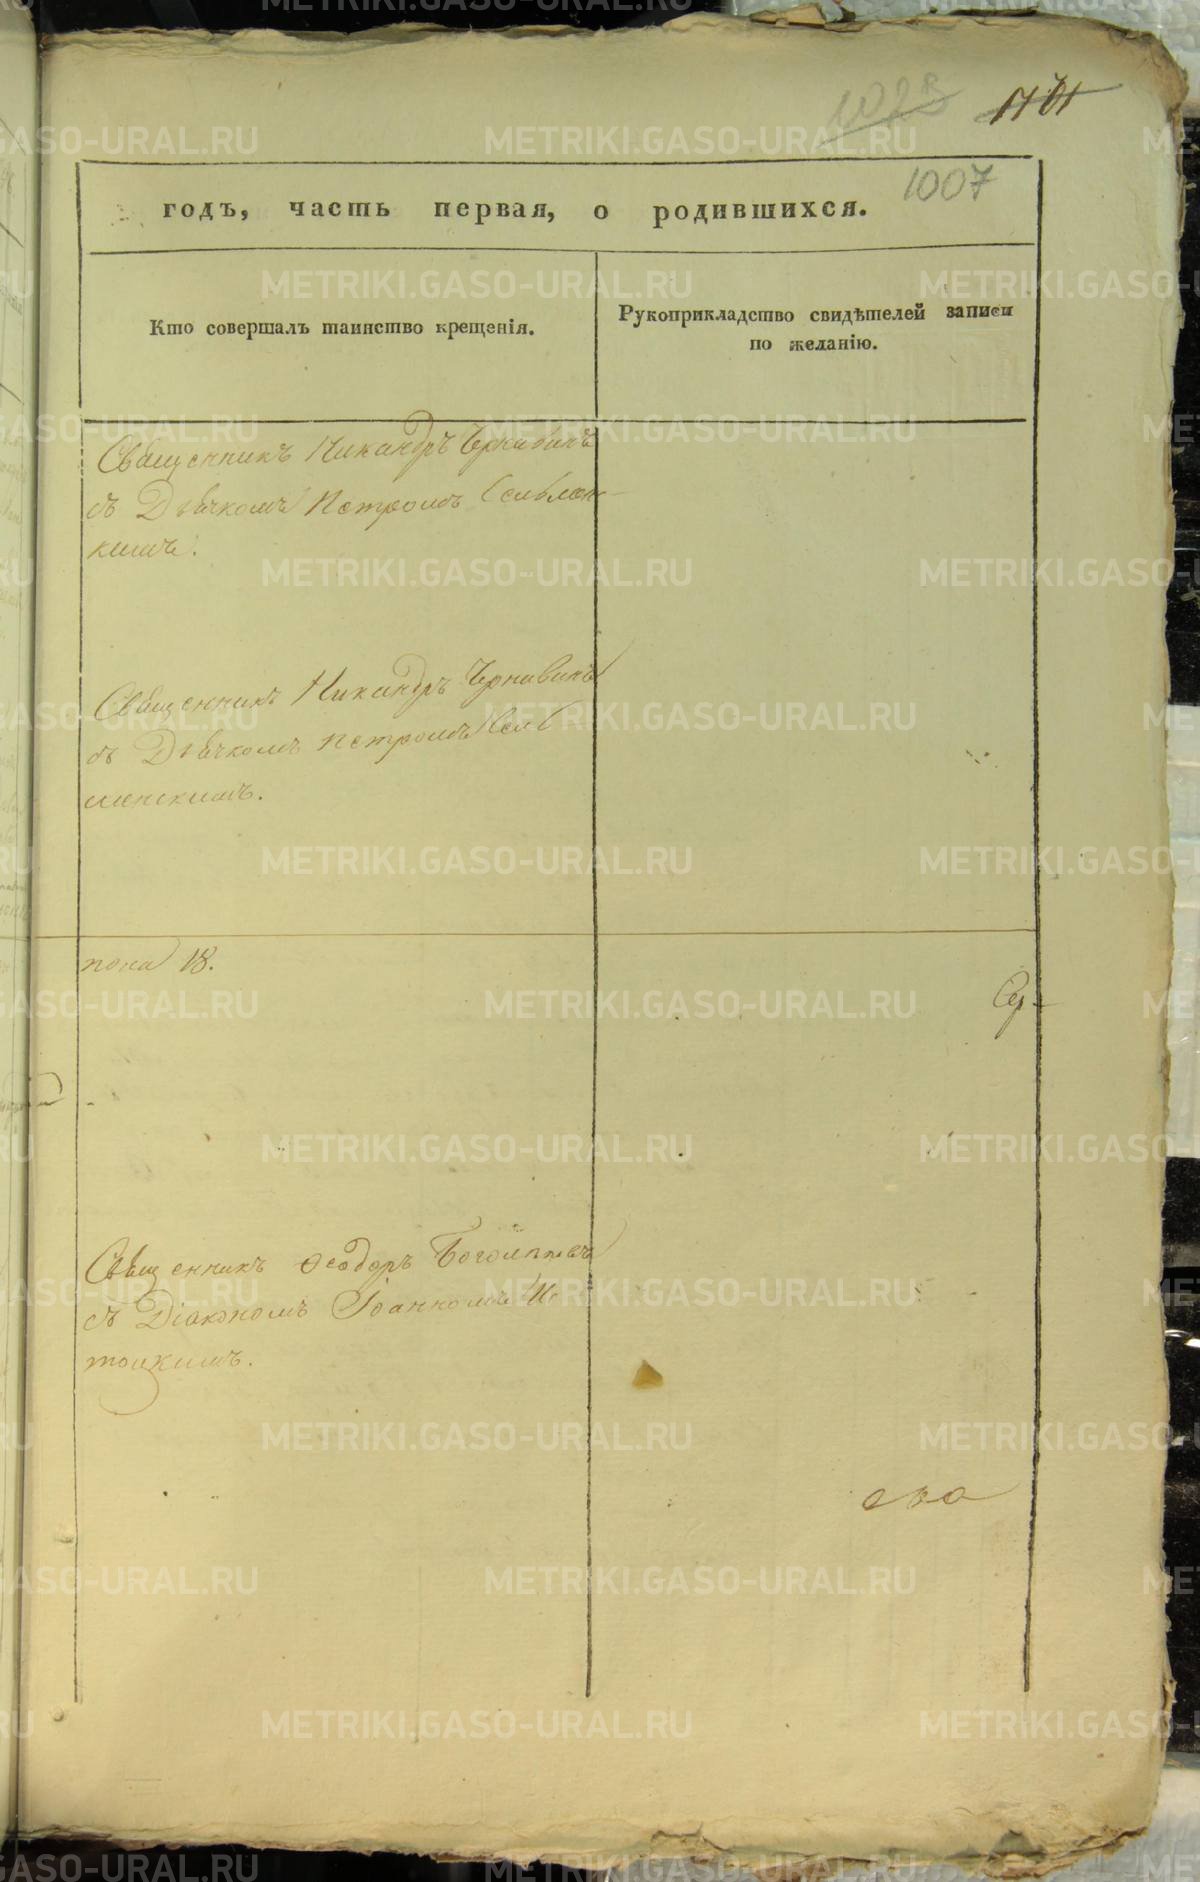 1007
годъ, часть первая, о родившихся.
Кто совершалъ таинство крещенія.
Рукоприкладство свидѣтелей записи
по желанію.
Священникъ Никандръ Чернавинъ
съ Дьячкомъ Петромъ
кимъ.
Священникъ Никандръ Чернавинъ
съ Дьячкомъ Петромъ
менскимъ.
пола 18.
Священникъ Ѳеодоръ
съ Діакономъ Іоанномъ Ис
тоцкимъ.
METRIKI.GASO-URAL.RU